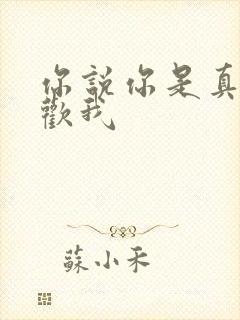 你說你是真
歡我
蘇小禾